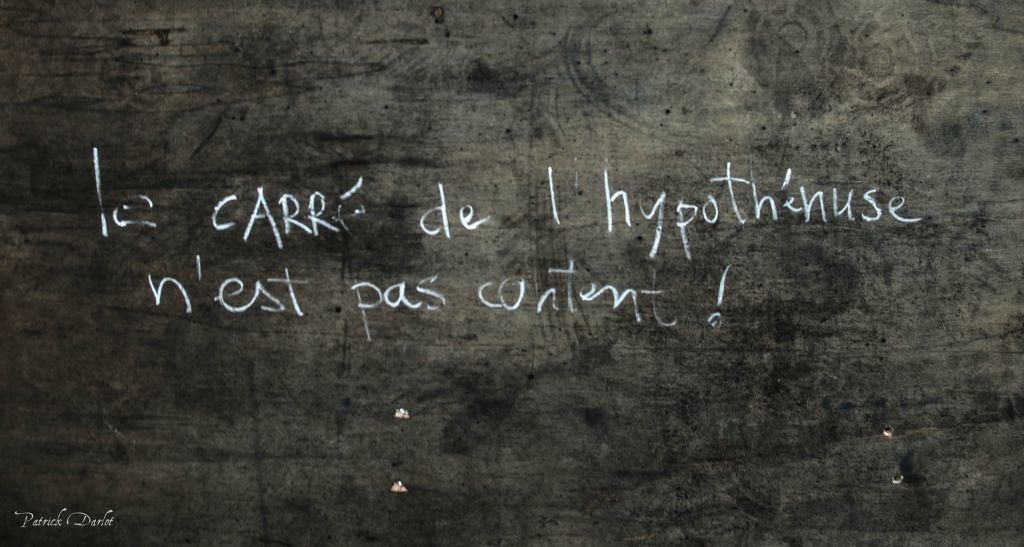 le CARRé de l'hypothénuse
n'est pas content !
Patrick Darlot